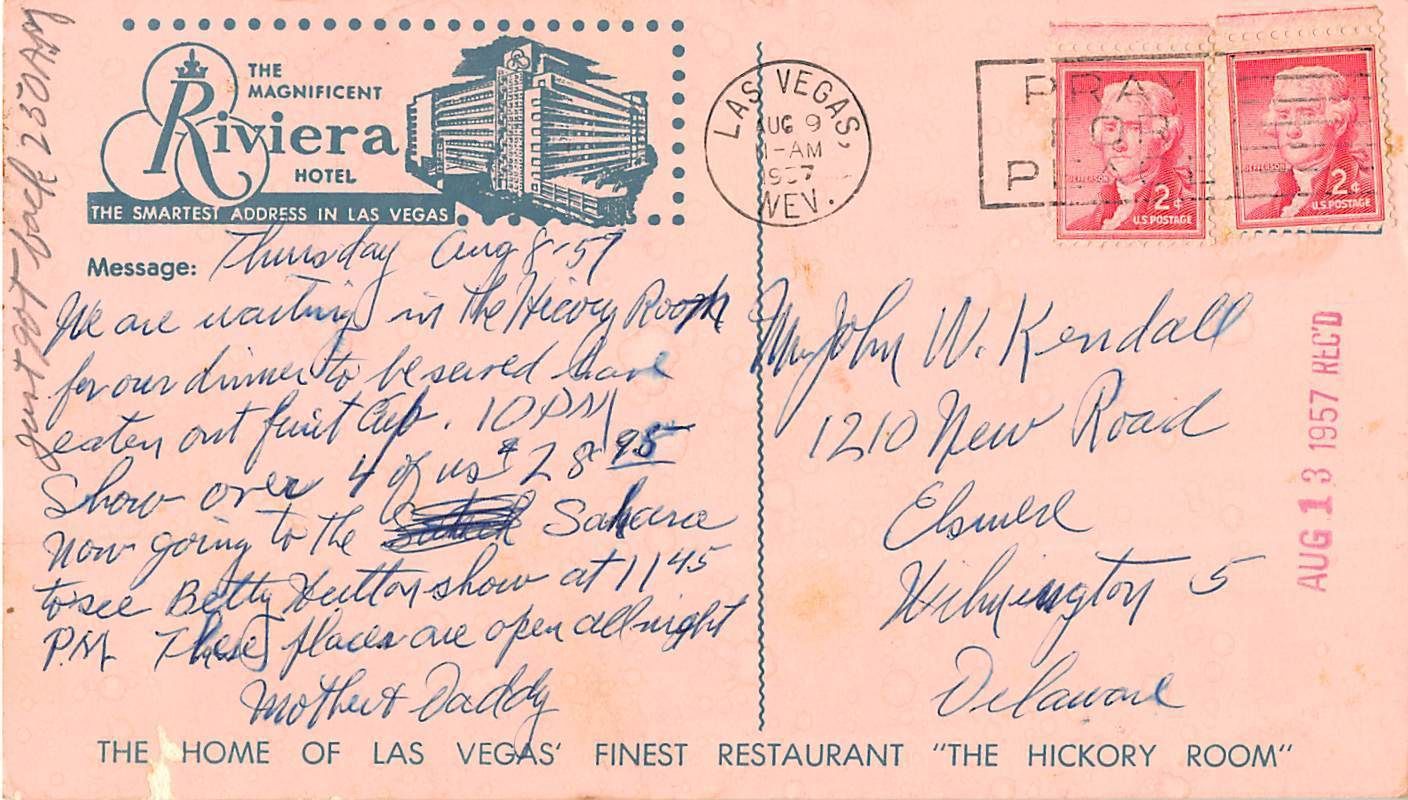 THE
MAGNIFICENT
Riviera
HOTEL
THE SMARTEST ADDRESS IN LAS VEGAS
LAS VEGAS,
AUG 9
-AM
1957
NEV.
PRAY
FOR
PEACE
JEFFERSON
2¢
U.S. POSTAGE
JEFFERSON
2¢
U.S. POSTAGE
just got back 2 30 AM
Message: Thursday Aug 8-57
We are waiting in the Hicory Room
for our dinner to be served have
eaten out fruit cup. 10 PM
Show over 4 of us $28 95
Now going to the Sahara
to see Betty Hutton show at 11 45
P.M. These places are open all night
Mother & Daddy
Mr John W. Kendall
1210 New Road
Elsmere
Wilmington 5
Delaware
AUG 13 1957 REC'D
THE HOME OF LAS VEGAS' FINEST RESTAURANT "THE HICKORY ROOM"